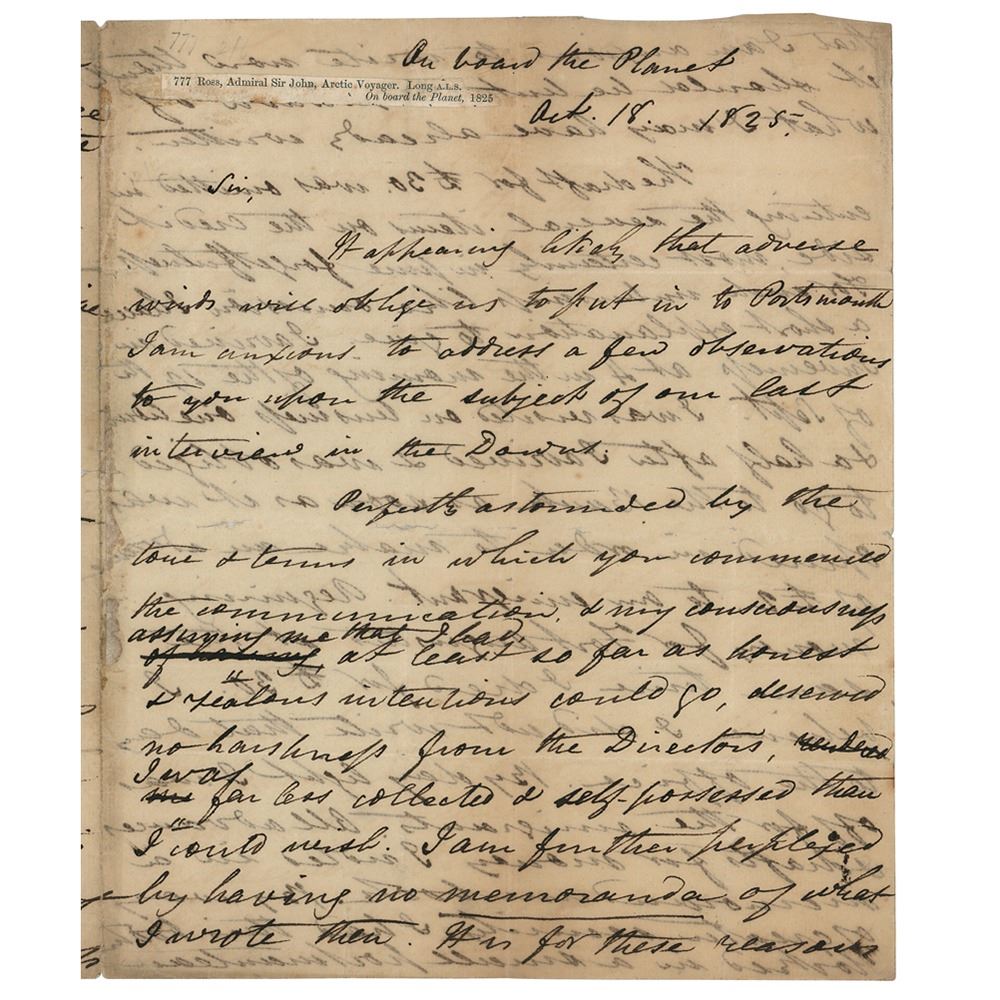 777
On board the Planet
777 Ross, Admiral Sir John, Arctic Voyager. Long A.L.S.
On board the Planet, 1825
Oct. 18. 1825.
Sir,
It appearing likely that adverse
winds will oblige us to put in to Portsmouth
I am anxious to address a few observations
to you upon the subject of our last
interview in the Downs.
Perfectly astounded by the
tone & terms in which you commenced
the communication, & my consciousness
assuring me that I had,
of having, at least so far as honest
& zealous intentions could go, deserved
no harshness from the Directors, rendered
I was
me far less collected & self-possessed than
I could wish. I am further perplexed
by having no memoranda of what
I wrote then. It is for these reasons